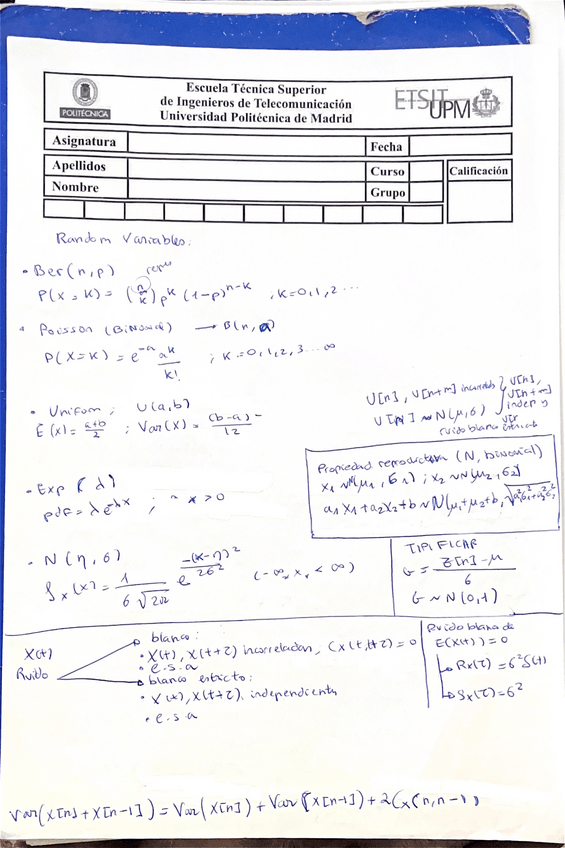 POLITÉCNICA
Escuela Técnica Superior
de Ingenieros de Telecomunicación
Universidad Politécnica de Madrid
ETSIT UPM
Asignatura
Fecha
Apellidos
Curso
Calificación
Nombre
Grupo
Random Variables:
• Ber(n,p)
P(X=K) = (n/K) p^k (1-p)^{n-k} ; K=0,1,2 ...
• Poisson (Binomial) → B(n,a)
P(X=K) = e^{-a} a^k / K! ; K=0,1,2,3 ... ∞
• Uniform ; U(a,b)
E(x) = a+b / 2 ; Var(X) = (b-a)- / 12
U[n], U[n+m] incorrelados } U[n], U[n+m] indep y
U[n] ~ N(μ,σ)
ruido blanco
• Exp (λ)
pdf = λe^{-λx} ; x > 0
Propiedad reproductiva (N, binomial)
X1 ~ N(μ1, σ1) ; X2 ~ N(μ2, σ2)
a1X1+a2X2+b ~ N(μ1+μ2+b, √a1²σ1²+a2²σ2²)
• N(η,σ)
fx(x) = 1 / σ√2π e^{-(x-η)² / 2σ²} (-∞, x, < ∞)
TIPIFICAR
G = Z[n]-μ / σ
G ~ N(0,1)
X(t)
Ruido
blanco:
• X(t), X(t+z) incorreladas, Cx(t,t+z) = 0
• e.s.a
blanco estricto:
• X(t), X(t+z) independientes
• e.s.a
Ruido blanco de
E(X(t)) = 0
Rx(τ) = σ²δ(t)
Sx(τ) = σ²
Var(X[n]+X[n-1]) = Var(X[n]) + Var(X[n-1]) + 2Cx(n,n-1)